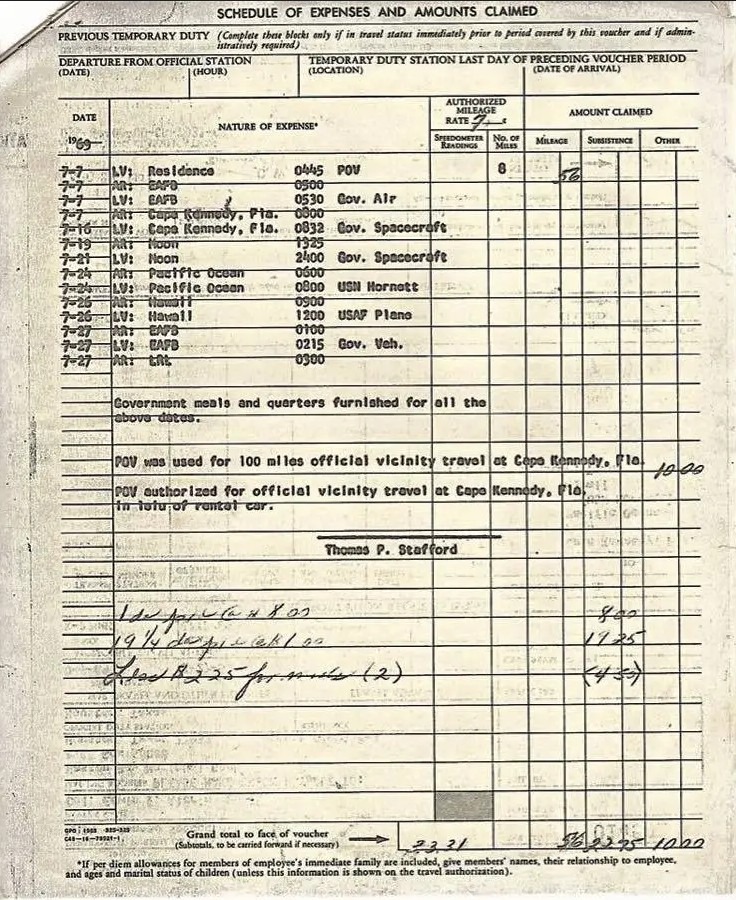 SCHEDULE OF EXPENSES AND AMOUNTS CLAIMED
PREVIOUS TEMPORARY DUTY (Complete these blocks only if in travel status immediately prior to period covered by this voucher and if admin-
istratively required)
DEPARTURE FROM OFFICIAL STATION TEMPORARY DUTY STATION LAST DAY OF PRECEDING VOUCHER PERIOD
(DATE) (HOUR) (LOCATION) (DATE OF ARRIVAL)
DATE NATURE OF EXPENSE* AUTHORIZED MILEAGE RATE 7 c AMOUNT CLAIMED
1969 SPEEDOMETER READINGS NO. OF MILES MILEAGE SUBSISTENCE OTHER
7-7 LV: Residence 0445 POV 8 56
7-7 AR: EAFB 0500
7-7 LV: EAFB 0530 Gov. Air
7-7 AR: Cape Kennedy, Fla. 0800
7-16 LV: Cape Kennedy, Fla. 0832 Gov. Spacecraft
7-19 AR: Moon 1325
7-21 LV: Moon 2400 Gov. Spacecraft
7-24 AR: Pacific Ocean 0600
7-24 LV: Pacific Ocean 0800 USN Hornett
7-26 AR: Hawaii 0900
7-26 LV: Hawaii 1200 USAF Plane
7-27 AR: EAFB 0100
7-27 LV: EAFB 0215 Gov. Veh.
7-27 AR: LRL 0300
Government meals and quarters furnished for all the
above dates.
POV was used for 100 miles official vicinity travel at Cape Kennedy, Fla. 10.00
POV authorized for official vicinity travel at Cape Kennedy, Fla.
in leiu of rental car.
Thomas P. Stafford
1 8.00 8.00
19 1/4 1.00 19 25
Less $2.25 for meals (2) (4 50)
GPO : 1968
Grand total to face of voucher
(Subtotals, to be carried forward if necessary) 33.31 56 22 75 10.00
*If per diem allowances for members of employee's immediate family are included, give members' names, their relationship to employee,
and ages and marital status of children (unless this information is shown on the travel authorization).